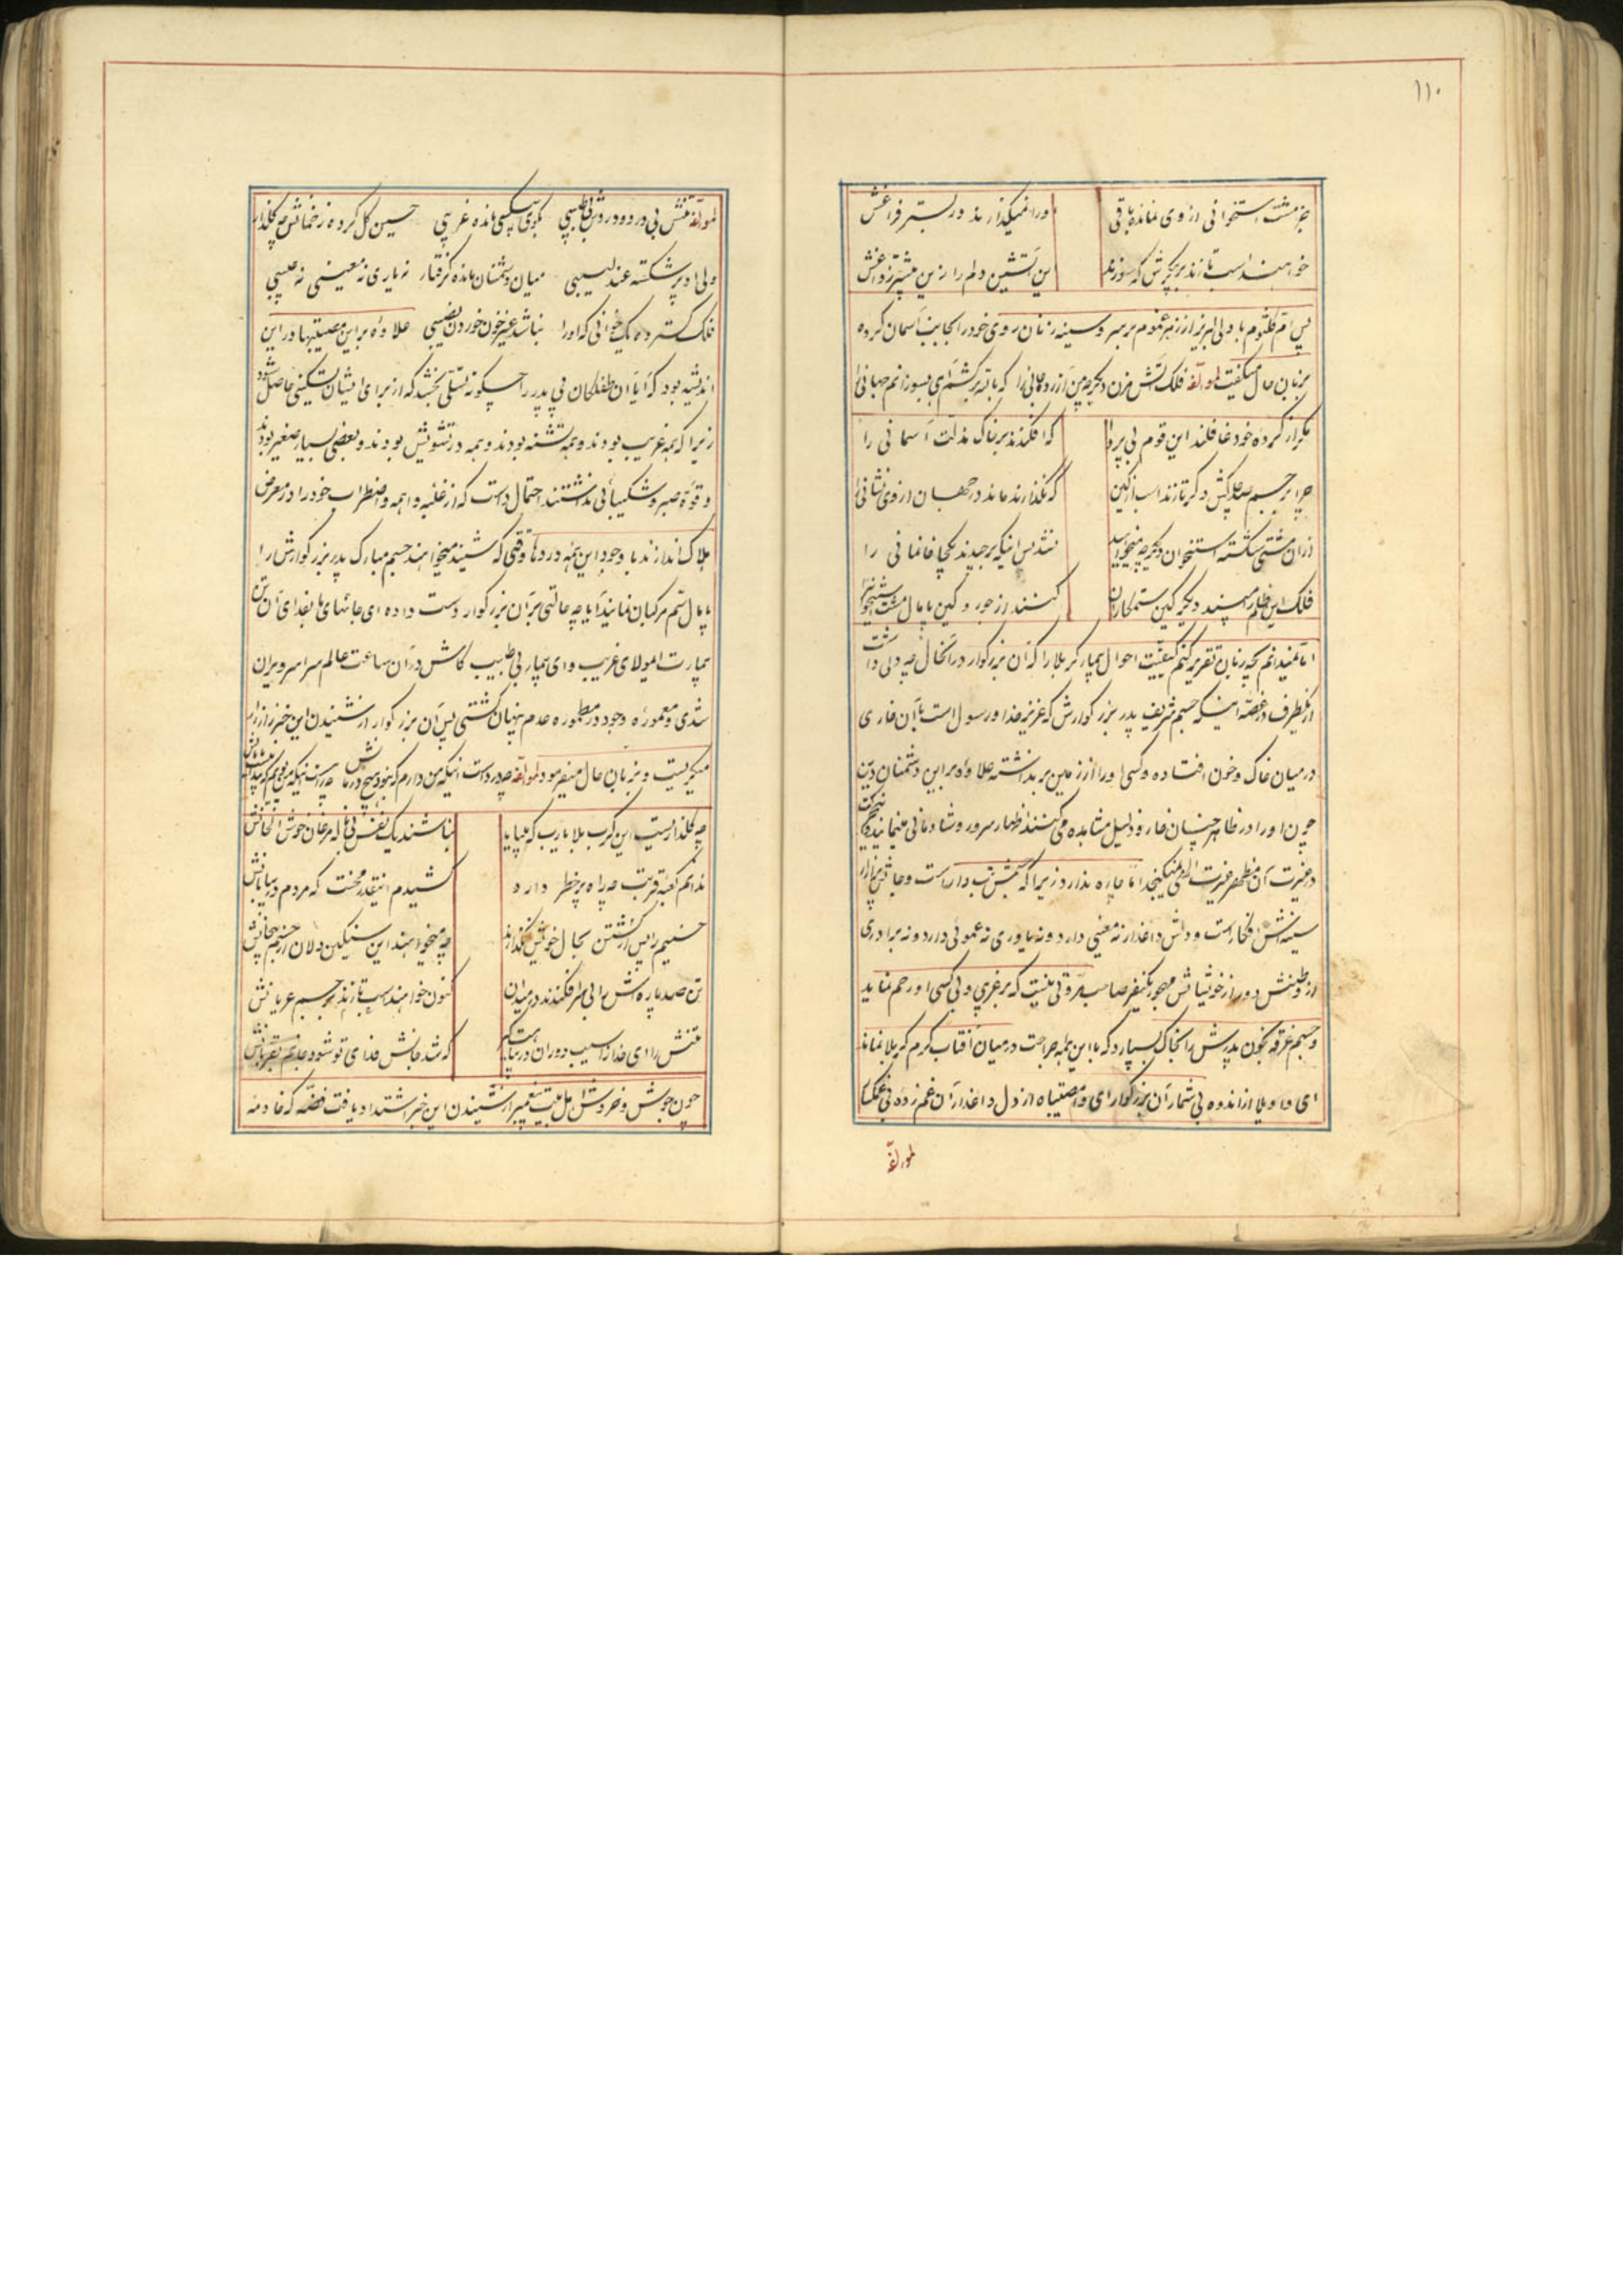 ۱۱۰
جز مشت استخوانی از وی نمانده باقی اورا نمیگذارند در بستر فراغش
خواهند اسب تازند بر پیکرش که سوزد این آتشین دلم را زین بیشتر ز داغش
پس ام کلثوم با دلی لبریز از زهر غموم بر سر و سینه زنان روی خود را بجانب آسمان کرده
بزبان حال میگفت لمولفه فلک آتش مزن دیگر
مکرر از کرده خود غافلند این قوم بی پروا که افکندند بر خاک مذلت آسمانی را
چرا بر جسم صد چاکش دگر تازند اسب از کین که نگذارند ماند در جهان از وی نشانی را
ازان مشتی شکسته استخوان دیگر چه میخواهید نشد بس اینکه برچیدند یکجا خانمانی را
فلک این ظلم را مپسند دیگر کین ستمکاران کنند از جور و کین پامال مشت استخوانی را
اما نمیدانم بچه زبان تقریر کنم کیفیت احوال بیمار کربلا را که آن بزرگوار در آنحال چه دلی داشت
از یکطرف در غصه اینکه جسم شریف پدر بزرگوارش که عزیز خدا و رسول است بآن خاری
در میان خاک و خون افتاده و کسی او را از زمین بر نداشته علاوه بر این دشمنان دین
چون او را در ظاهر چنان خار و ذلیل مشاهده می کنند اظهار سرور و شادمانی مینمایند
در غیرت آن مظهر غیرت الهی نمیگنجد اما چاره ندارد زیرا که تنش تب دار است و
سینه اش افکار است و دلش داغدار نه معینی دارد و نه یاوری نه عموئی دارد و نه برادری
از وطنش دور از خویشانش مهجور یکنفر صاحب مروتی نیست که بر غریبی و بی کسی او رحم نماید
و جسم غرقه بخون پدرش را بخاک بسپارد که با این همه جراحت در میان آفتاب گرم کربلا نماند
ای واویلا از اندوه بی شمار آن بزرگوار ای وامصیبتاه از دل داغدار آن غم زده بی غمگسار
لمولفه
لمولفه تنش بی درد و در بی طبیبی بکوی بیکسی مانده غریبی حسین گل کرده زخمانش چو گلزار
ولی او پر شکسته عندلیبی میان دشمنان مانده گرفتار نه یاری نه معینی نه حبیبی
فلک گسترده یک خوانی که او را نباشد غیر خون خوردن نصیبی علاوه بر این مصیبتها در این
اندیشه بود که آیا آن طفلکان بی پدر را چگونه تسلی بخشد که از برای ایشان تسکینی حاصل شود
زیرا که همه غریب بودند و همه تشنه بودند و همه در تشویش بودند و بعضی بسیار صغیر بودند
و قوه صبر و شکیبائی نداشتند احتمال داشت که از غلبه واهمه و اضطراب خود را در معرض
هلاک اندازند با وجود این همه دردها وقتی که شنید میخواهند جسم مبارک پدر بزرگوارش را
پامال سم مرکبان نمایند آیا چه حالتی بر آن بزرگوار دست داده ای جانهای ما بفدای آن تن
بیمارت ای مولای غریب و ای بیمار بی طبیب کاش در آن ساعت عالم سراسر ویران
شدی و معموره وجود در مطموره عدم پنهان گشتی پس آن بزرگوار از شنیدن این خبر زار زار
میگریست و بزبان حال میفرمود لمولفه چه درد است اینکه من دارم که نبود هیچ درمانش
چه گلزاریست این کرب بلا یارب که نباشند یک نفس بی ناله مرغان خوش الحانش
ندانم کعبه قربت چه راه پر خطر دارد شنیدم اینقدر محنت که مردم در بیابانش
حسینم را پس از کشتن بحال خویش نگذارند چه میخواهند این سنگین دلان از جسم بیجانش
تن صد پاره اش را بی سر افکندند در میدان کنون خواهند اسب تازند بر جسم عریانش
تنش را ای خدا از آسیب دوران که شد جانش فدای تو شود
چون جوش و خروش اهل بیت پیغمبر از شنیدن این خبر اشتداد یافت فضه که خادمه